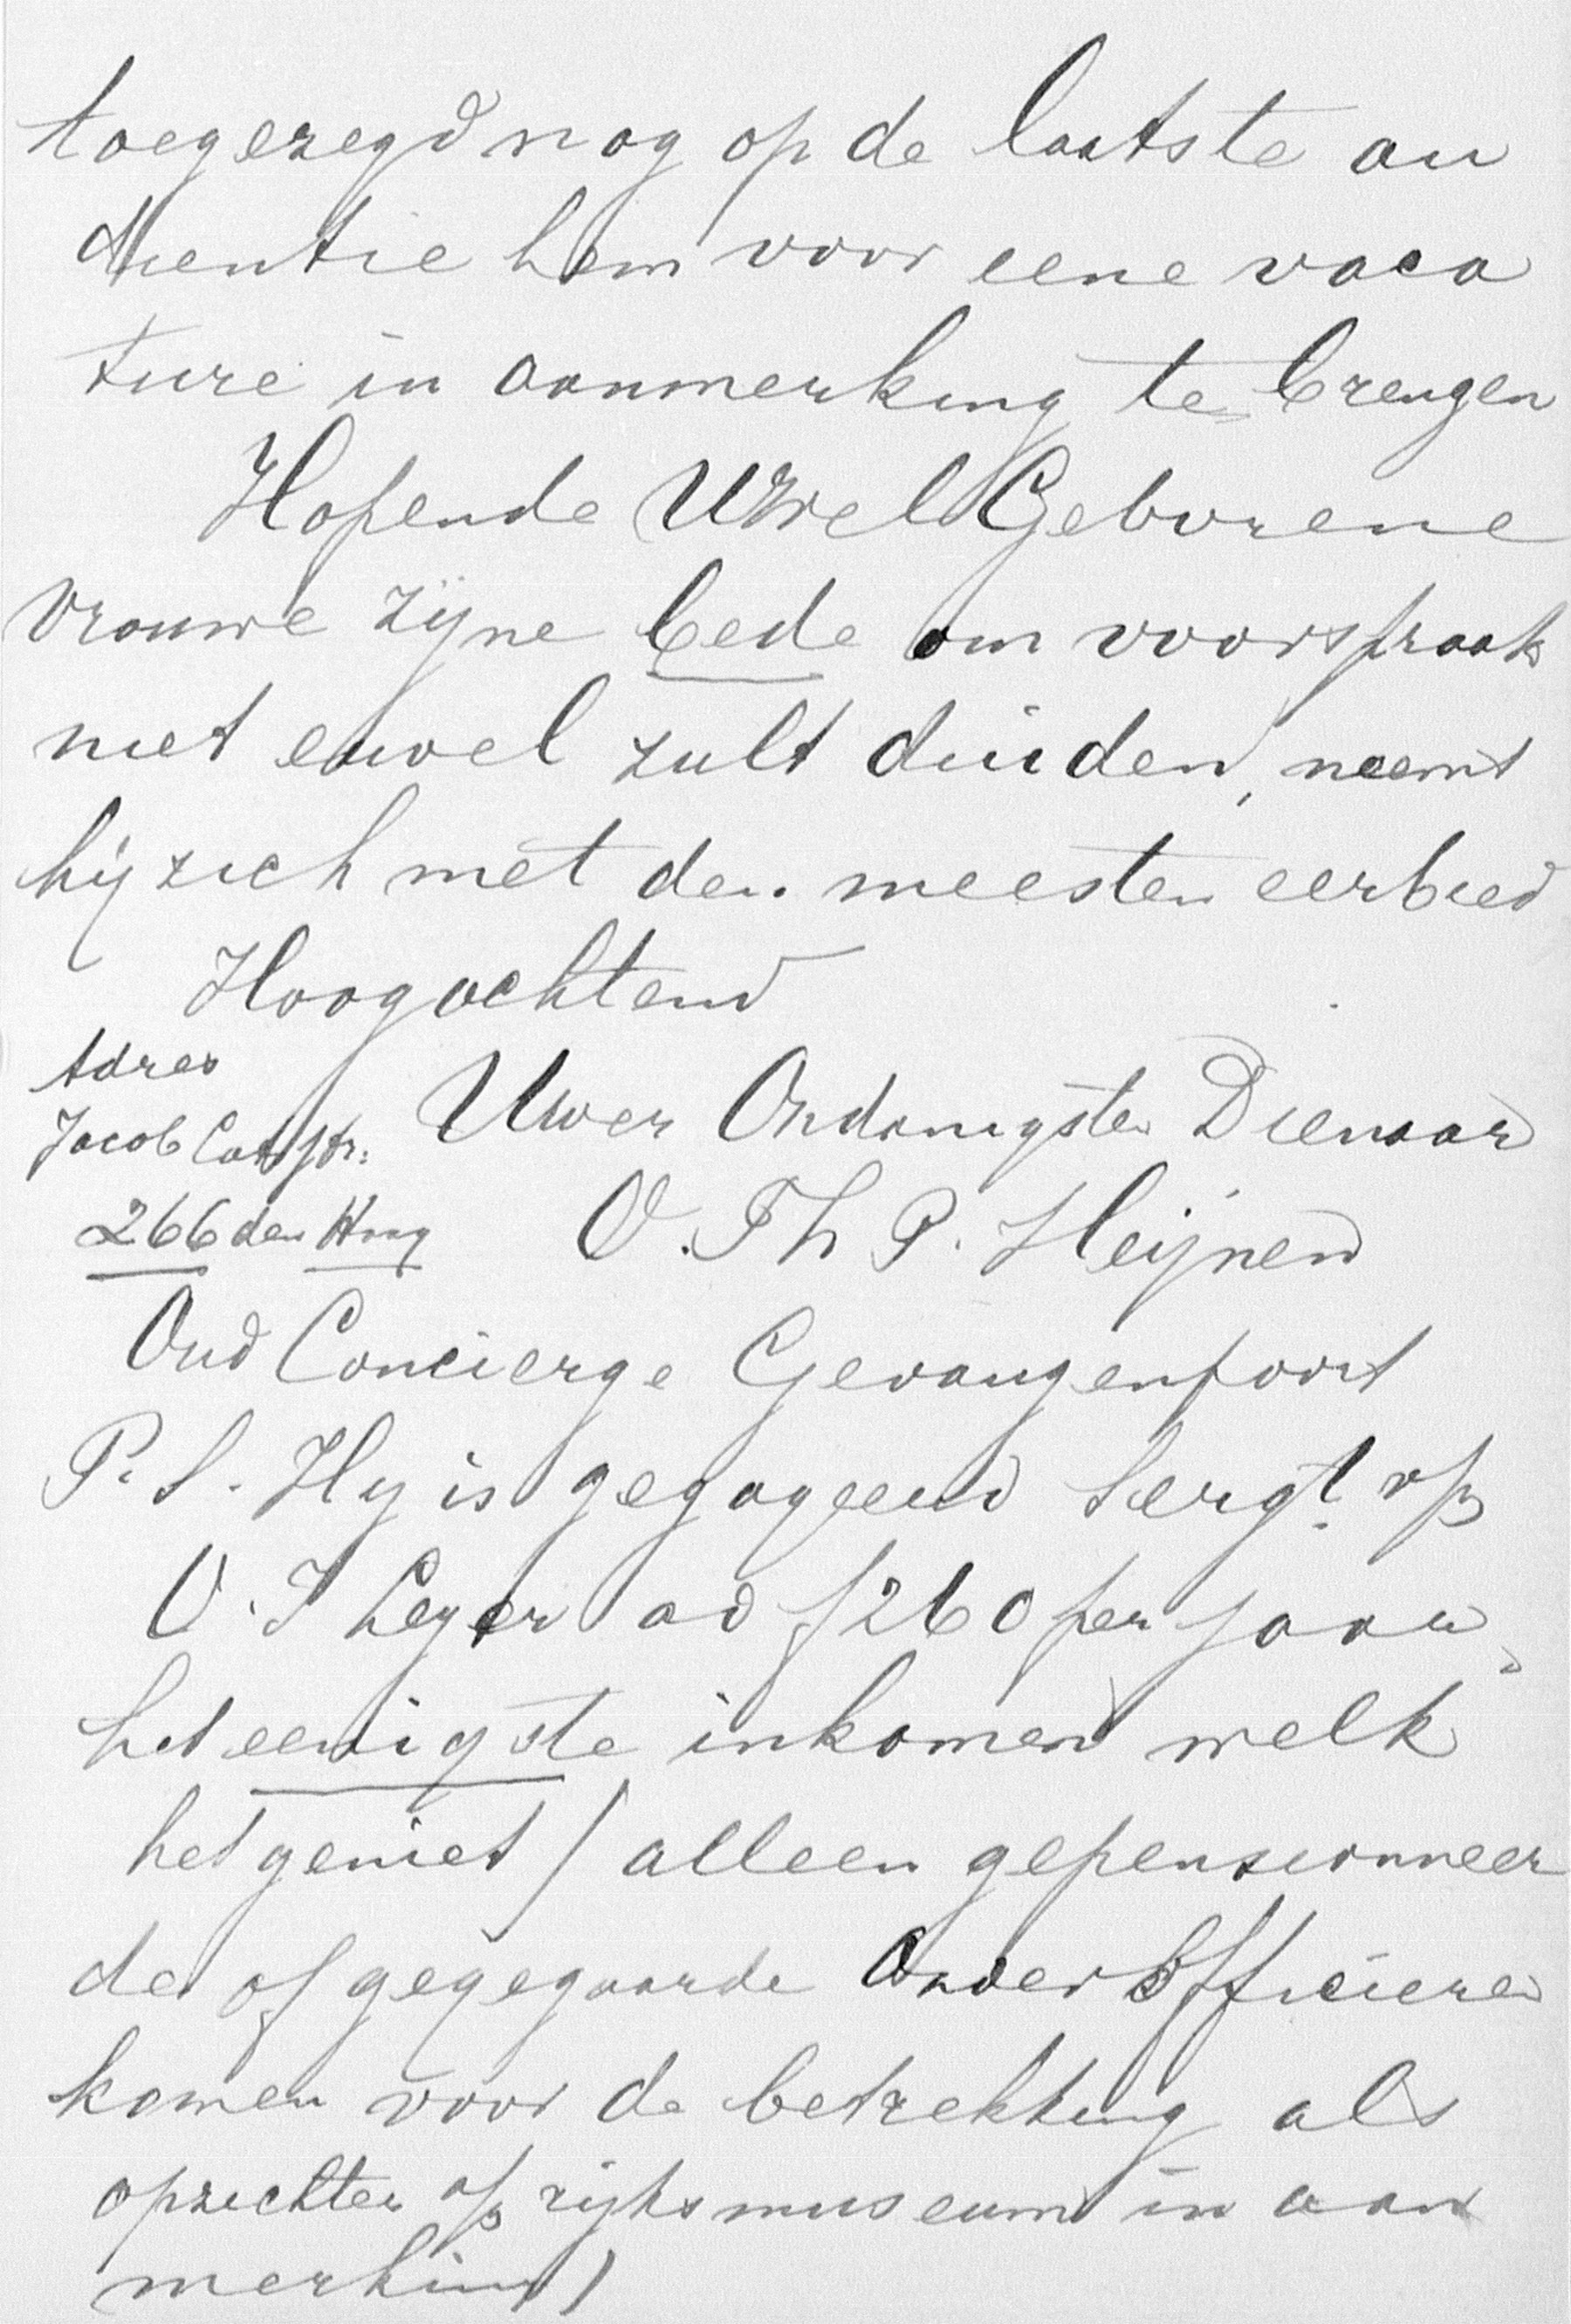 toegezegd nog op de laatste au
dientie hem voor eene vaca
ture in aanmerking te brengen
Hopende UWelGeborene
vrouwe zijne bede om voorspraak
niet euvel zult duiden, neemt
hij zich met den meesten eerbied
Hoogachtend
Adres
Jacob Catsstr:
266 den Haag
Uwer Onderdanigste Dienaar
O. Th P. Heijnen
Oud Concierge Gevangenpoort
P.S. Hij is gegageerd Sergt. op
O.I Leger ad f 260 per jaar,
het eenigste inkomen welk
het geniet / alleen gepensionneer
de of gegegaarde Onder Officieren
komen voor de betrekking als
opzichter op rijksmuseum in aan
merking)